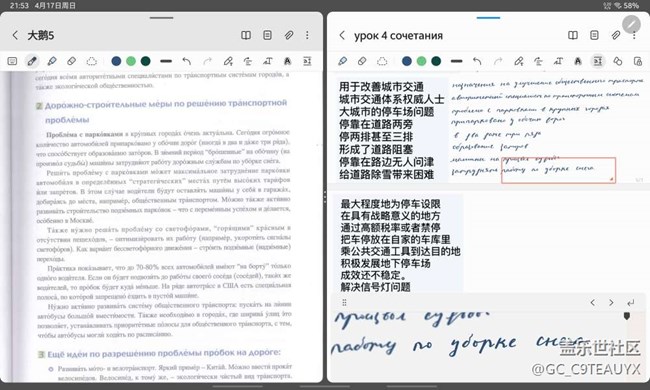 21:53 4月17日周日
58%
大鹅5
сегодня всеми авторитетными специалистами по транспортным системам городов, а
также экологической общественностью.
2 Дорожно-строительные меры по решению транспортной
проблемы
Проблема с парковками в крупных городах очень актуальна. Сегодня огромное
количество автомобилей припарковано у обочин дорог (иногда в два и даже три ряда),
что способствует образованию заторов. В зимний период "брошенные" на обочину (на
произвол судьбы) машины затрудняют работу дорожным службам по уборке снега.
Решить проблему с парковками может максимальное затруднение парковки
автомобиля в определённых "стратегических" местах путём высоких тарифов
или запретов. В этом случае водители будут оставлять машины у себя в гаражах,
добираясь до места, например, общественным транспортом. Можно также активно
развивать строительство подземных парковок – что с переменным успехом и делается,
особенно в Москве.
Также нужно решать проблему со светофорами, "горящими" красным в
отсутствии пешеходов, – оптимизировать их работу (например, укоротить сигналы
светофоров). Как вариант бессветофорного движения – строить подземные (надземные)
переходы.
Практика показывает, что до 70-80% всех автомобилей имеют "на борту" только
одного водителя. Если он будет подвозить до работы своего соседа (соседей), таких же
водителей, то пробок будет куда меньше. На ряде автотрасс в США есть специальная
полоса, по которой запрещено ездить в пустой машине.
Нужно активно развивать систему общественного транспорта: пускать на линии
автобусы большой вместимости. Также необходимо в городах, где ширина улиц это
позволяет, устанавливать приоритетные полосы для общественного транспорта, с тем,
чтобы автобусы могли ходить по расписанию.
3 Ещё идеи по разрешению проблемы пробок на дороге:
• Развивать мото- и велотранспорт. Яркий пример – Китай. Можно ввести прокат
велосипедов. Велосипед, к тому же, – экологически чистый вид транспорта.
урок 4 сочетания
用于改善城市交通
城市交通体系权威人士
大城市的停车场问题
停靠在道路两旁
停两排甚至三排
形成了道路阻塞
停靠在路边无人问津
给道路除雪带来困难
в два ряда три ряда
работу по уборке снега
最大程度地为停车设限
在具有战略意义的地方
通过高额税率或者禁停
把车停放在自家的车库里
乘公共交通工具到达目的地
积极发展地下停车场
成效还不稳定。
解决信号灯问题
работу по уборке снега
盖乐世社区
@GC_C9TEAUYX